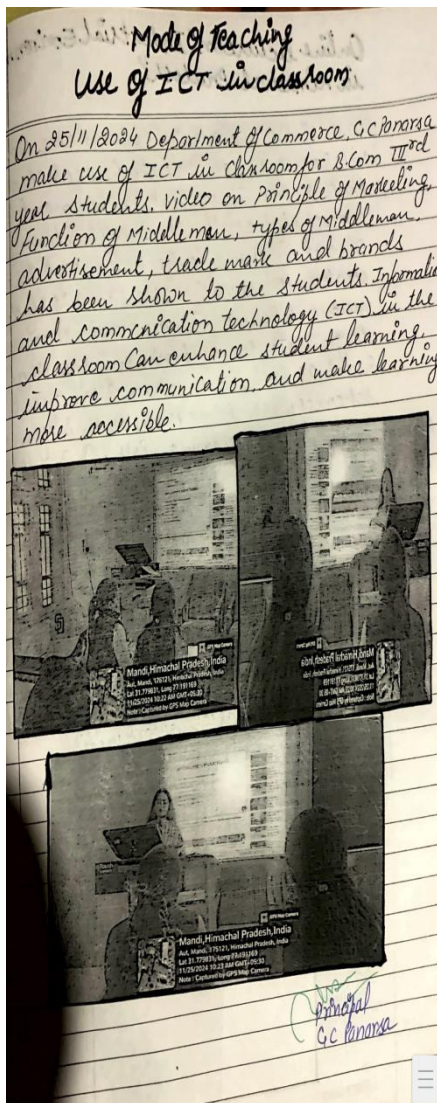 Mode of Teaching
Use of ICT in classroom
On 25/11/2024 Department of Commerce, GC Panarsa
make use of ICT in classroom for B.Com IIIrd
year students. Video on Principle of Marketing,
Function of Middle man, types of Middleman,
advertisement, trade mark and brands
has been shown to the students. Informatio
and commcnication technology (ICT) in the
classroom can enhance student learning,
improve communication, and make learning
more accessible.
GPS Map Camera
Mandi,Himachal Pradesh,India
Aut, Mandi, 175121, Himachal Pradesh, India
Lat 31.779831, Long 77.191169
11/25/2024 10:22 AM GMT+05:30
Note : Captured by GPS Map Camera
Mandi,Himachal Pradesh,India
GPS Map Camera
Mandi,Himachal Pradesh,India
Aut, Mandi, 175121, Himachal Pradesh, India
Lat 31.779831, Long 77.191169
11/25/2024 10:23 AM GMT+05:30
Note : Captured by GPS Map Camera
Principal
GC Panarsa